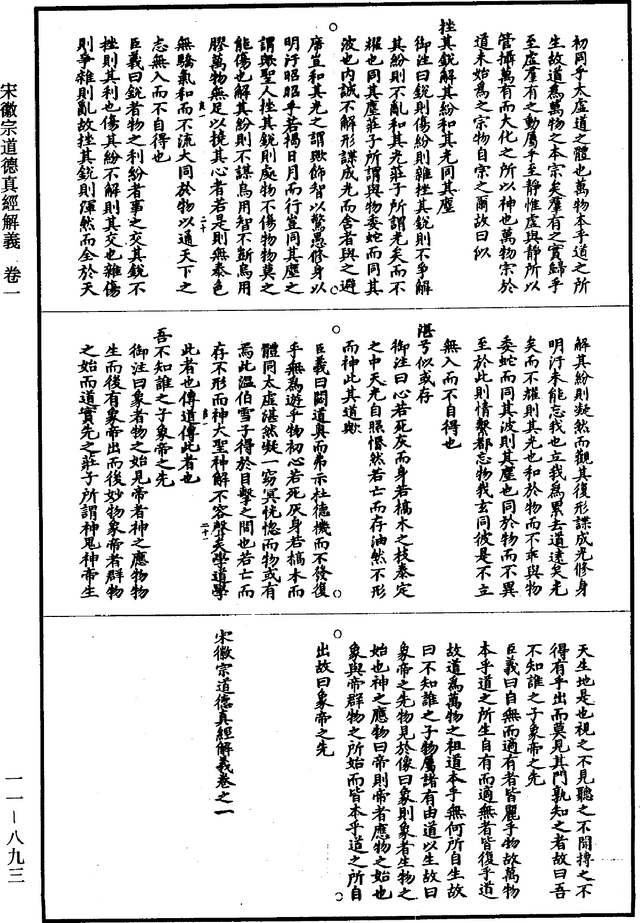 宋徽宗道德真經解義　卷一
一一—八九三
初同乎太虛道之體也萬物本乎道之所
生故道爲萬物之本宗矣羣有之實歸乎
至虛羣有之動屬乎至靜惟虛與靜所以
管攝萬有而大化之所以神也萬物宗於
道未始爲之宗物自宗之爾故曰似
挫其銳解其紛和其光同其塵
御注曰銳則傷紛則雜挫其銳則不爭解
其紛則不亂和其光莊子所謂光矣而不
耀也同其塵莊子所謂與物委蛇而同其
波也內誠不解形諜成光而舍者與之避
席豈和其光之謂歟飾智以驚愚修身以
明汙昭昭乎若揭日月而行豈同其塵之
謂歟聖人挫其銳則處物不傷物物莫之
能傷也解其紛則不謀烏用智不斲烏用
膠萬物無足以撓其心者若是則無泰色
無驕氣和而不流大同於物以通天下之
志無入而不自得也
臣義曰銳者物之利紛者事之交其銳不
挫則其利也傷其紛不解則其交也雜傷
則爭雜則亂故挫其銳則渾然而全於天
解其紛則凝然而觀其復形諜成光修身
明汙未能忘我也立我爲累去道遠矣光
矣而不耀則其光也和於物而不乖與物
委蛇而同其波則其塵也同於物而不異
至於此則情繫都忘物我玄同彼是不立
無入而不自得也
湛兮似或存
御注曰心若死灰而身若槁木之枝泰定
之中天光自照惛然若亡而存油然不形
而神此其道歟
臣義曰闢道奧而弗示杜德機而不發復
乎無爲遊乎物初心若死灰身若槁木而
體同太虛湛然凝一窈冥恍惚而物或有
焉此溫伯雪子得於目擊之間也若亡而
存不形而神大聖神解不容聲矣學道學
此者也傳道傳此者也
吾不知誰之子象帝之先
御注曰象者物之始見帝者神之應物物
生而後有象帝出而後妙物象帝者群物
之始而道實先之莊子所謂神鬼神帝生
天生地是也視之不見聽之不聞摶之不
得有乎出而莫見其門孰知之者故曰吾
不知誰之子象帝之先
臣義曰自無而適有者皆麗乎物故萬物
本乎道之所生自有而適無者皆復乎道
故道爲萬物之祖道本乎無何所自生故
曰不知誰之子物屬諸有由道以生故曰
象帝之先物見於像曰象則象者生物之
始也神之應物曰帝則帝者應物之始也
象與帝群物之所始而皆本乎道之所自
出故曰象帝之先
宋徽宗道德真經解義卷之一